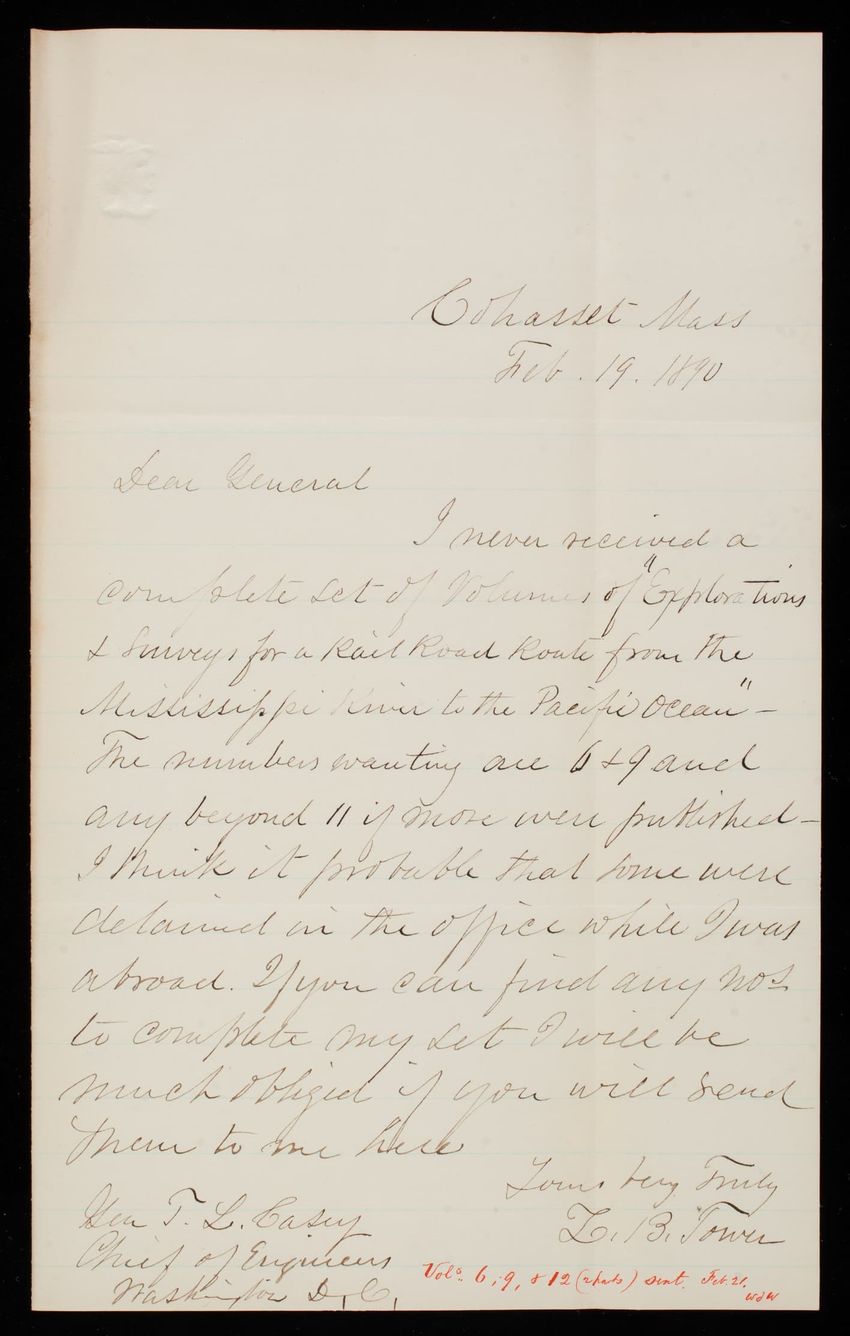 Cohasset Mass
Feb. 19. 1890
Dear General
I never received a
complete set of Volumes of "Explorations
& Surveys for a Rail Road Route from the
Mississippi River to the Pacific Ocean" -
The numbers wanting are 6 & 9 and
any beyond 11 if more were published -
I think it probable that some were
detained in the office while I was
abroad. If you can find any Nos
to complete my set I will be
much obliged if you will send
them to me here
Yours very Truly
Z. B. Tower
Gen T. L. Casey
Chief of Engineers
Washington D. C.
Vols. 6, 9, & 12 (2 parts) sent. Feb. 21.
WJW